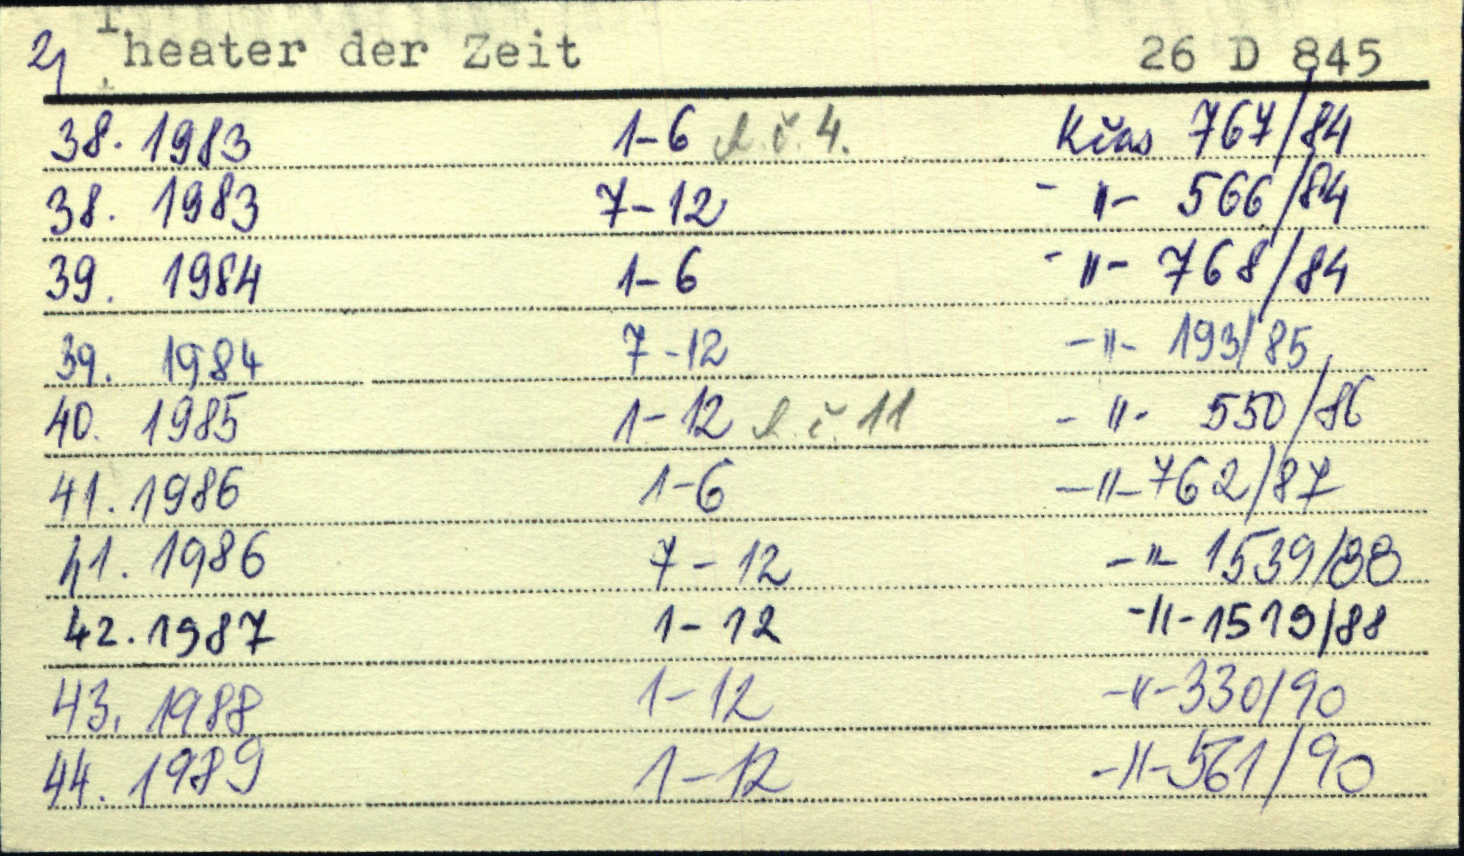 2) Theater der Zeit 26 D 845
38. 1983 1-6 č. 4. Kčas 767/84
38. 1983 7-12 -"- 566/84
39. 1984 1-6 -"- 768/84
39. 1984 7-12 -"- 193/85
40. 1985 1-12 č. 11 -"- 550/86
41. 1986 1-6 -"- 762/87
41. 1986 7-12 -"- 1539/88
42. 1987 1-12 -"- 1519/88
43. 1988 1-12 -"- 330/90
44. 1989 1-12 -"- 561/90